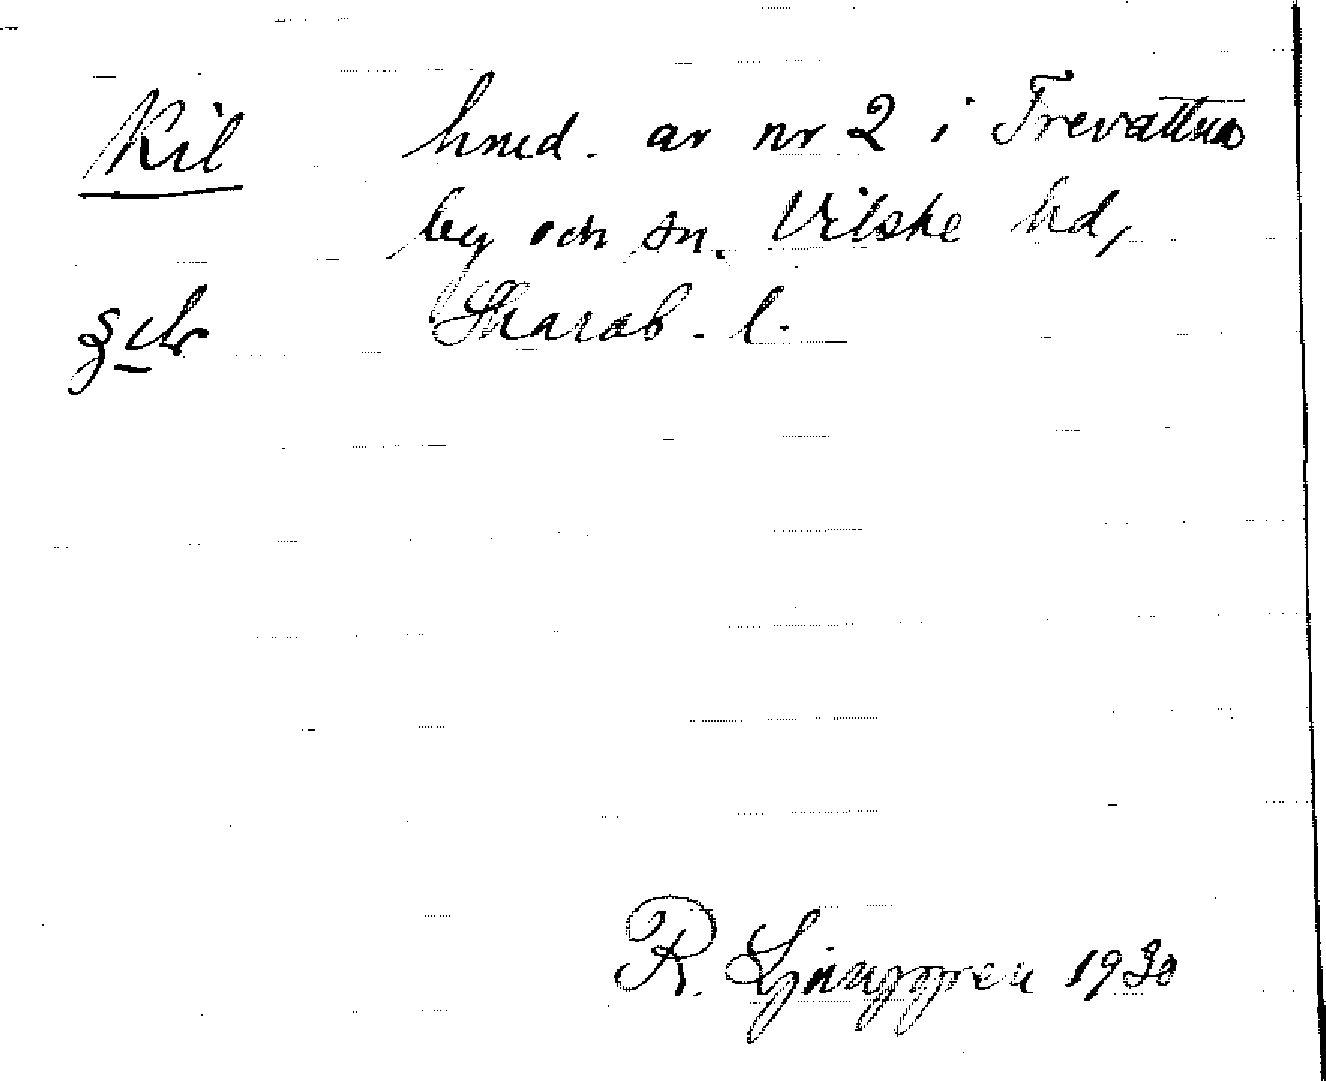 Kil hmd. av nr 2 i Trevattna
by och sn. Vilske hd,
Skarab. l.
R. Ljunggren 1930